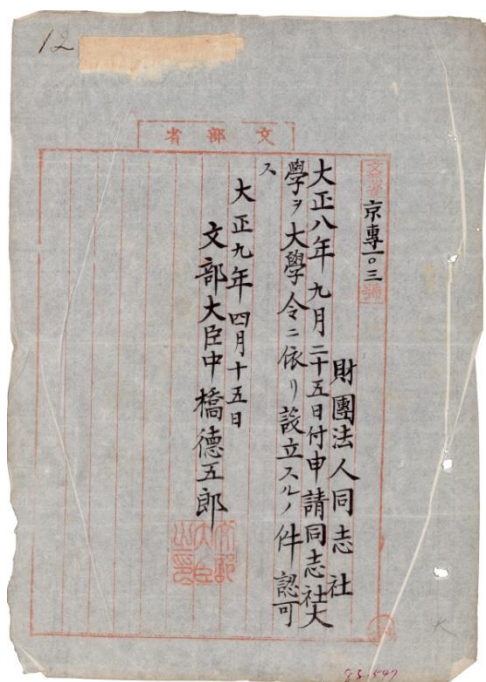 12
文部省
京專一〇三
財團法人同志社
大正八年九月二十五日付申請同志社大
學ヲ大學令ニ依リ設立スルノ件認可
ス
大正九年四月十五日
文部大臣中橋德五郎
文部大臣之印